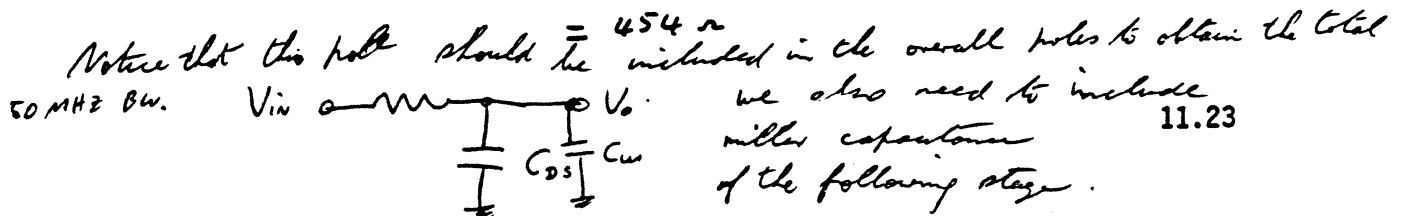 = 454 Ω
Notice that this pole should be included in the overall poles to obtain the total
50 MHZ BW. VIN Vo. we also need to include
11.23
CDS miller capacitance
of the following stage.